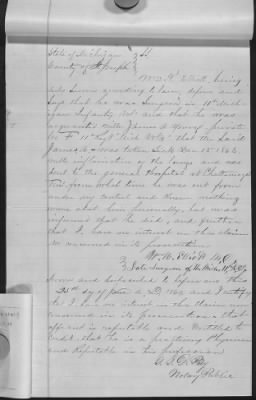 State of Michigan } ss
County of St Joseph }
Wm N Elliott, being
duly sworn according to law, deposes and
says that he was Surgeon in 11th Mich-
igan Infantry Vol and that he was
acquainted with James A Young private
Co F 11th Regt Mich Vols, that the said
James A was taken sick Dec 15 1863
with inflammation of the lungs and was
sent to the general Hospital at Chattanooga
Ten, from which time he was out from
under my control and know nothing
more about him personally, but was
informed that he died, and further
that I have no interest in this claim
or concerned in its prosecution
Wm N Elliott M D
Late Surgeon of the
Sworn and subscribed to before me this
25th day of A D, 1869 and I certify
that I have no interest in this claim nor
concerned in its prosecution & that
affiant is reputable and entitled to
credit that he is a practicing Physician
and Reputable in his profession
Notary Public